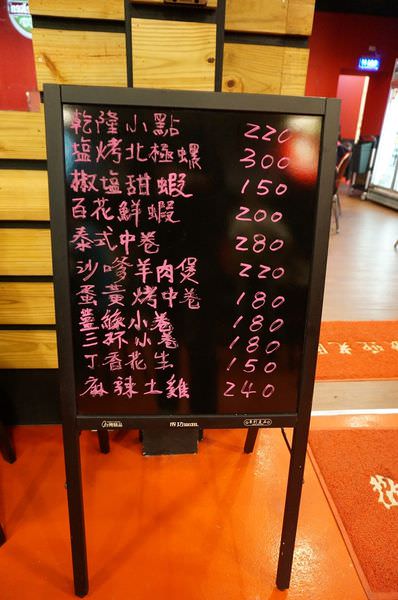 乾隆小點 220
塩烤北極螺 300
椒塩甜蝦 150
百花鮮蝦 200
泰式中卷 280
沙嗲羊肉煲 220
蛋黃烤中卷 180
薑絲小卷 180
三杯小卷 180
丁香花生 150
麻辣土雞 240